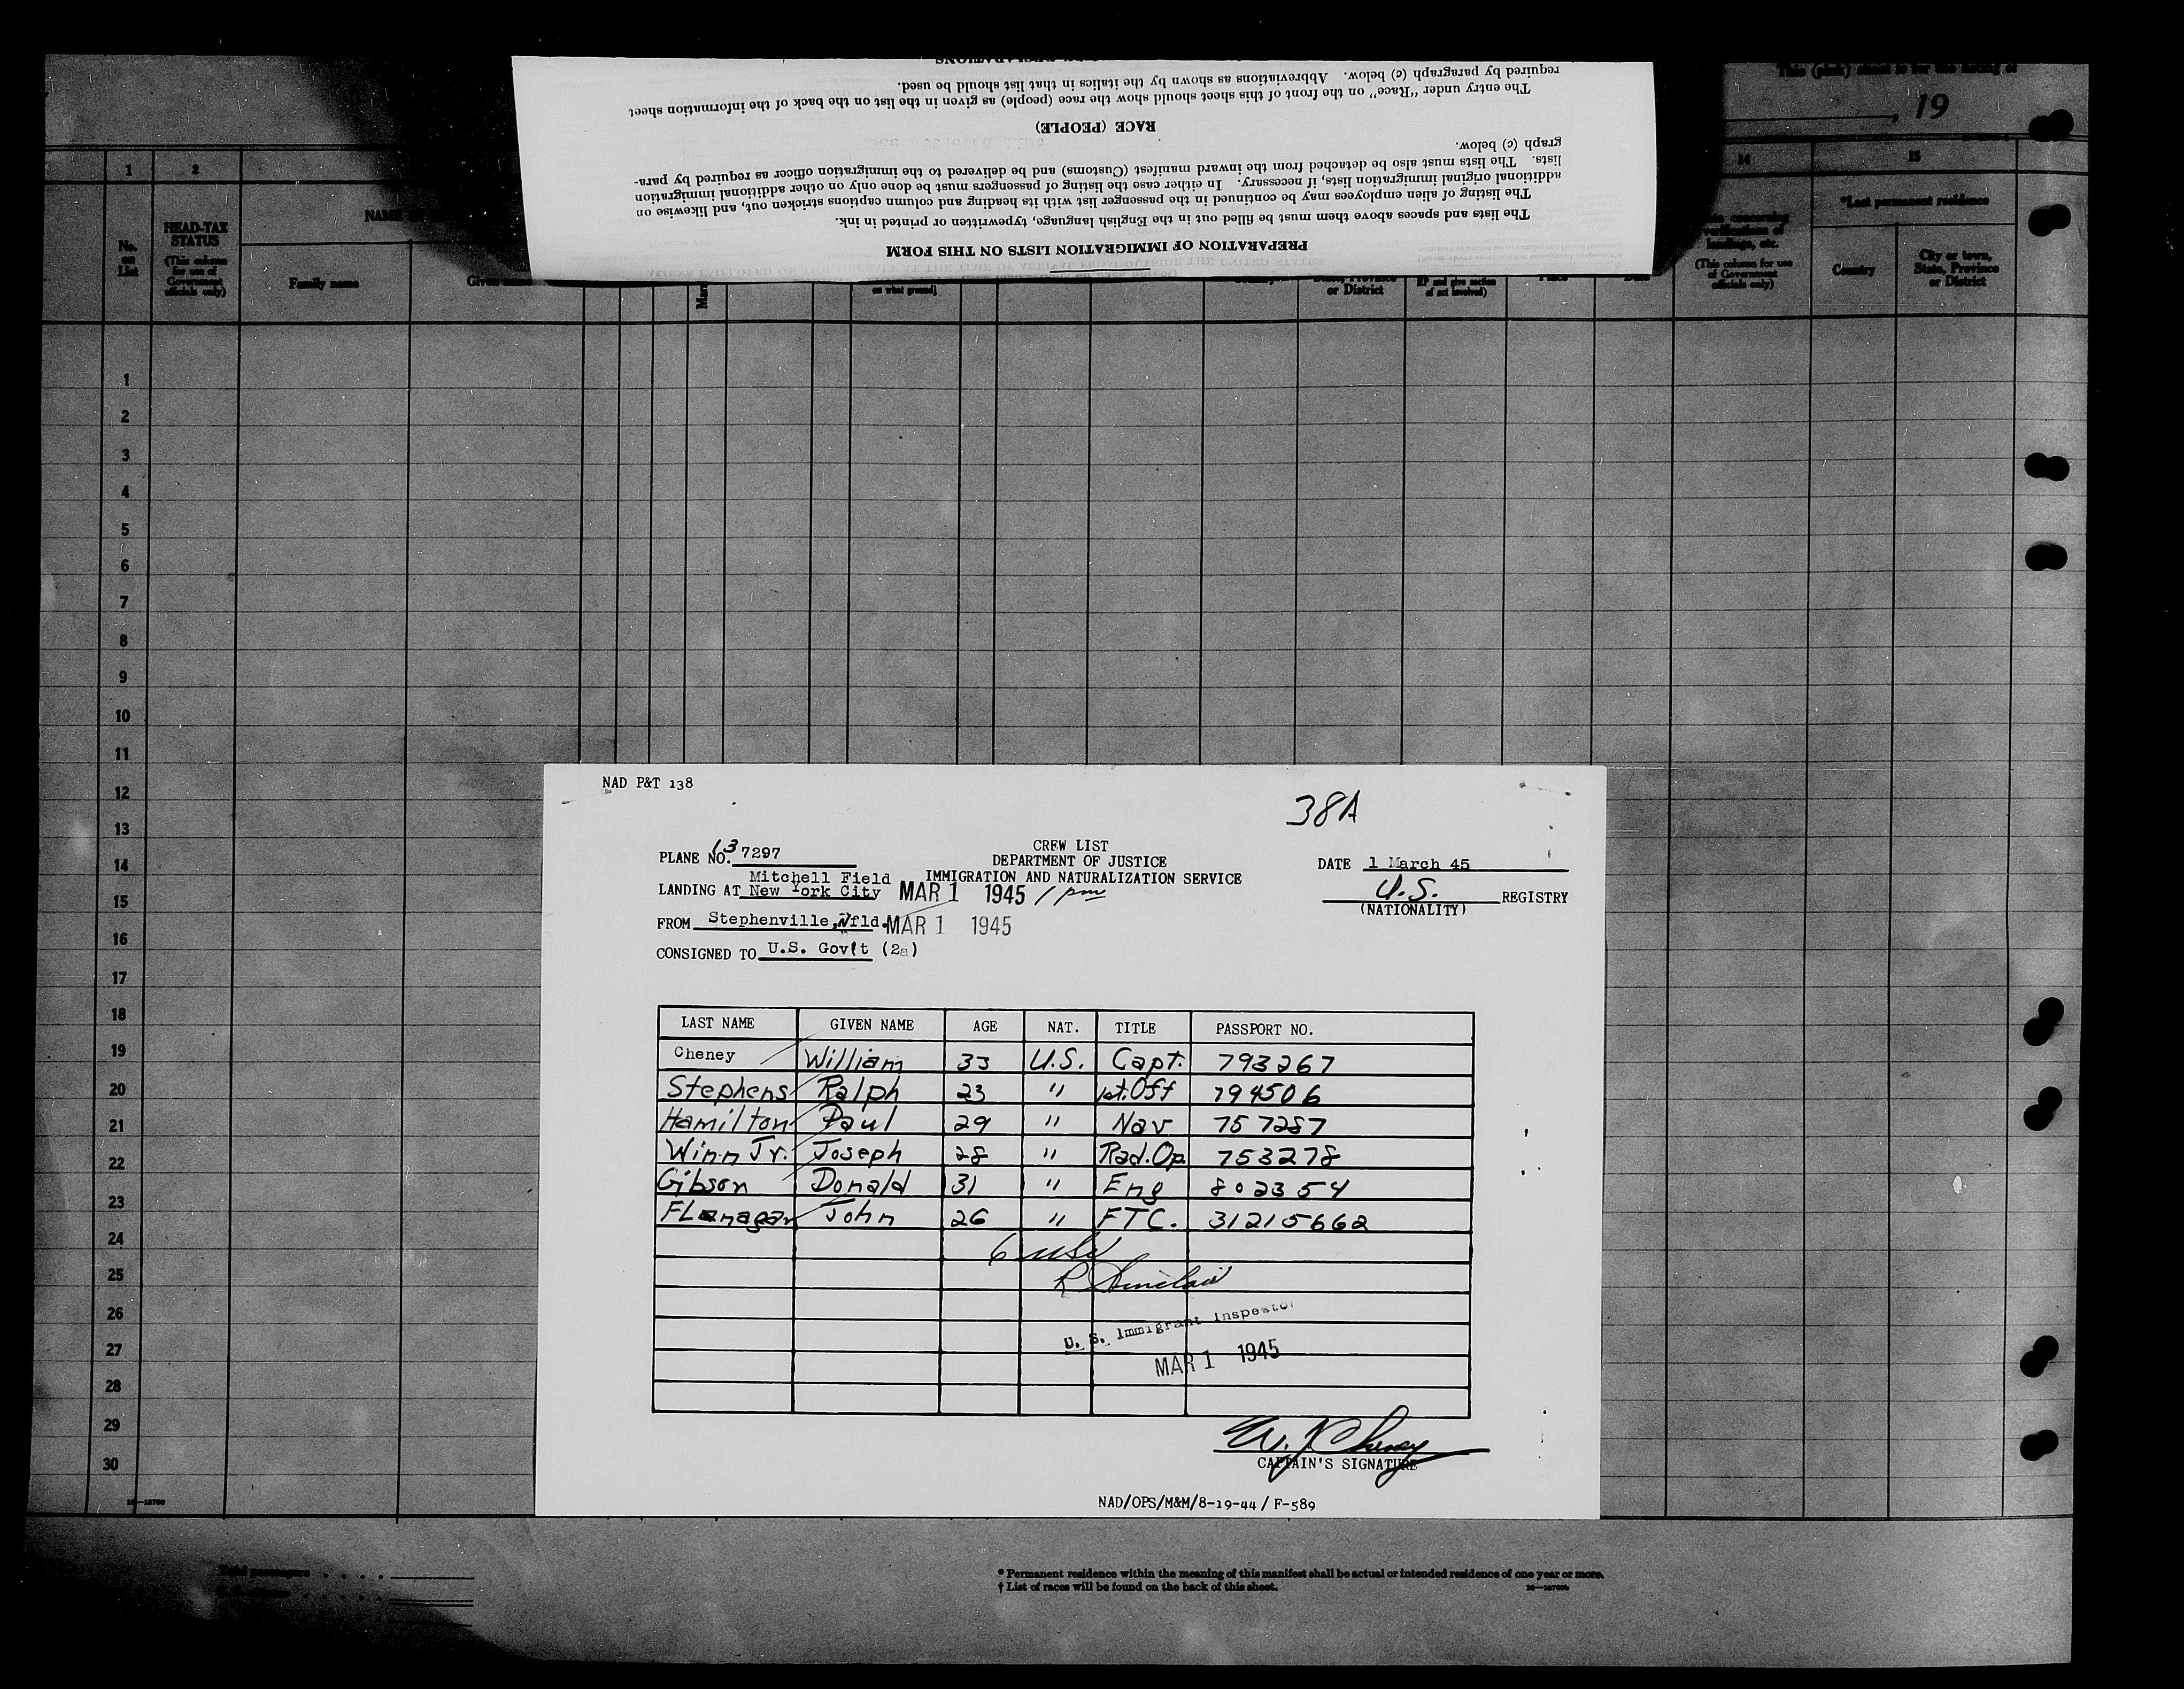 This (pink) sheet is for the listing of
, 19
DECLARATIONS
required by paragraph (c) below. Abbreviations as shown by the italics in that list should be used.
The entry under "Race" on the front of this sheet should show the race (people) as given in the list on the back of the information sheet
RACE (PEOPLE)
graph (c) below.
lists. The lists must also be detached from the inward manifest (Customs) and be delivered to the immigration officer as required by para-
additional original immigration lists, if necessary. In either case the listing of passengers must be done only on other additional immigration
The listing of alien employees may be continued in the passenger list with its heading and column captions stricken out, and likewise on
The lists and spaces above them must be filled out in the English language, typewritten or printed in ink.
PREPARATION OF IMMIGRATION LISTS ON THIS FORM
1 2 14 15
No. on List
HEAD-TAX STATUS
(This column for use of Government officials only)
NAME
Family name
Given name
on what ground)
or District
RP and give section of act involved)
Place
verifications of landings, etc.
(This column for use of Government officials only)
*Last permanent residence
Country
City or town, State, Province or District
1
2
3
4
5
6
7
8
9
10
11
12
13
14
15
16
17
18
19
20
21
22
23
24
25
26
27
28
29
30
NAD P&T 138
38A
CREW LIST
DEPARTMENT OF JUSTICE
IMMIGRATION AND NATURALIZATION SERVICE
PLANE NO. 13 7297
DATE 1 March 45
Mitchell Field
LANDING AT New York City MAR 1 1945 1 pm
U.S. REGISTRY
(NATIONALITY)
FROM Stephenville, Nfld. MAR 1 1945
CONSIGNED TO U.S. Gov't (2a)
LAST NAME GIVEN NAME AGE NAT. TITLE PASSPORT NO.
Cheney William 33 U.S. Capt. 793267
Stephens Ralph 23 " 1st.Off 794506
Hamilton Paul 29 " Nav 757287
Winn Jr. Joseph 28 " Rad.Op. 753278
Gibson Donald 31 " Eng 802354
FLanagan John 26 " FTC. 31215662
6 USC
R Sinclair
U. S. Immigrant Inspector
MAR 1 1945
W. J. Cheney
CAPTAIN'S SIGNATURE
NAD/OPS/M&M/8-19-44 / F-589
Total passengers
* Permanent residence within the meaning of this manifest shall be actual or intended residence of one year or more.
† List of races will be found on the back of this sheet.